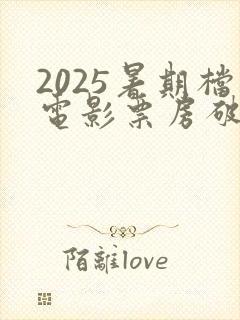 2025暑期檔
電影票房破
陌離love